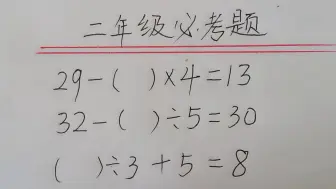 二年级必考题
29-( )×4=13
32-( )÷5=30
( )÷3+5=8